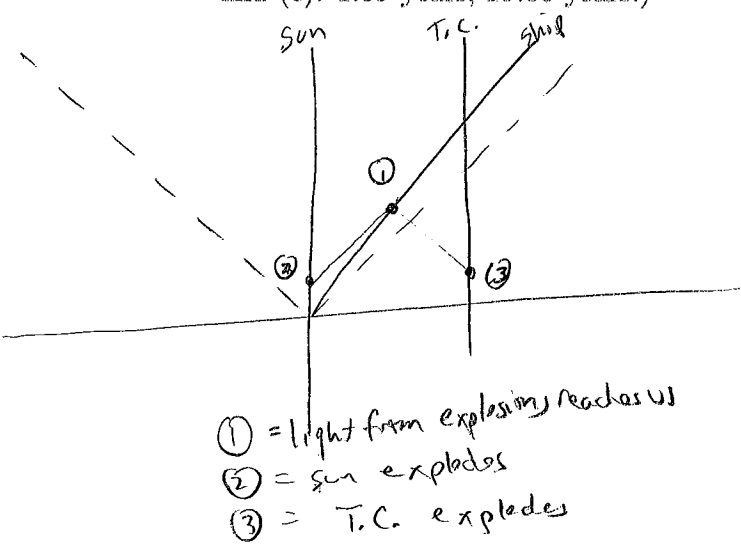 Sun T.C. ship
①
② ③
① = light from explosions reaches us
② = sun explodes
③ = T.C. explodes